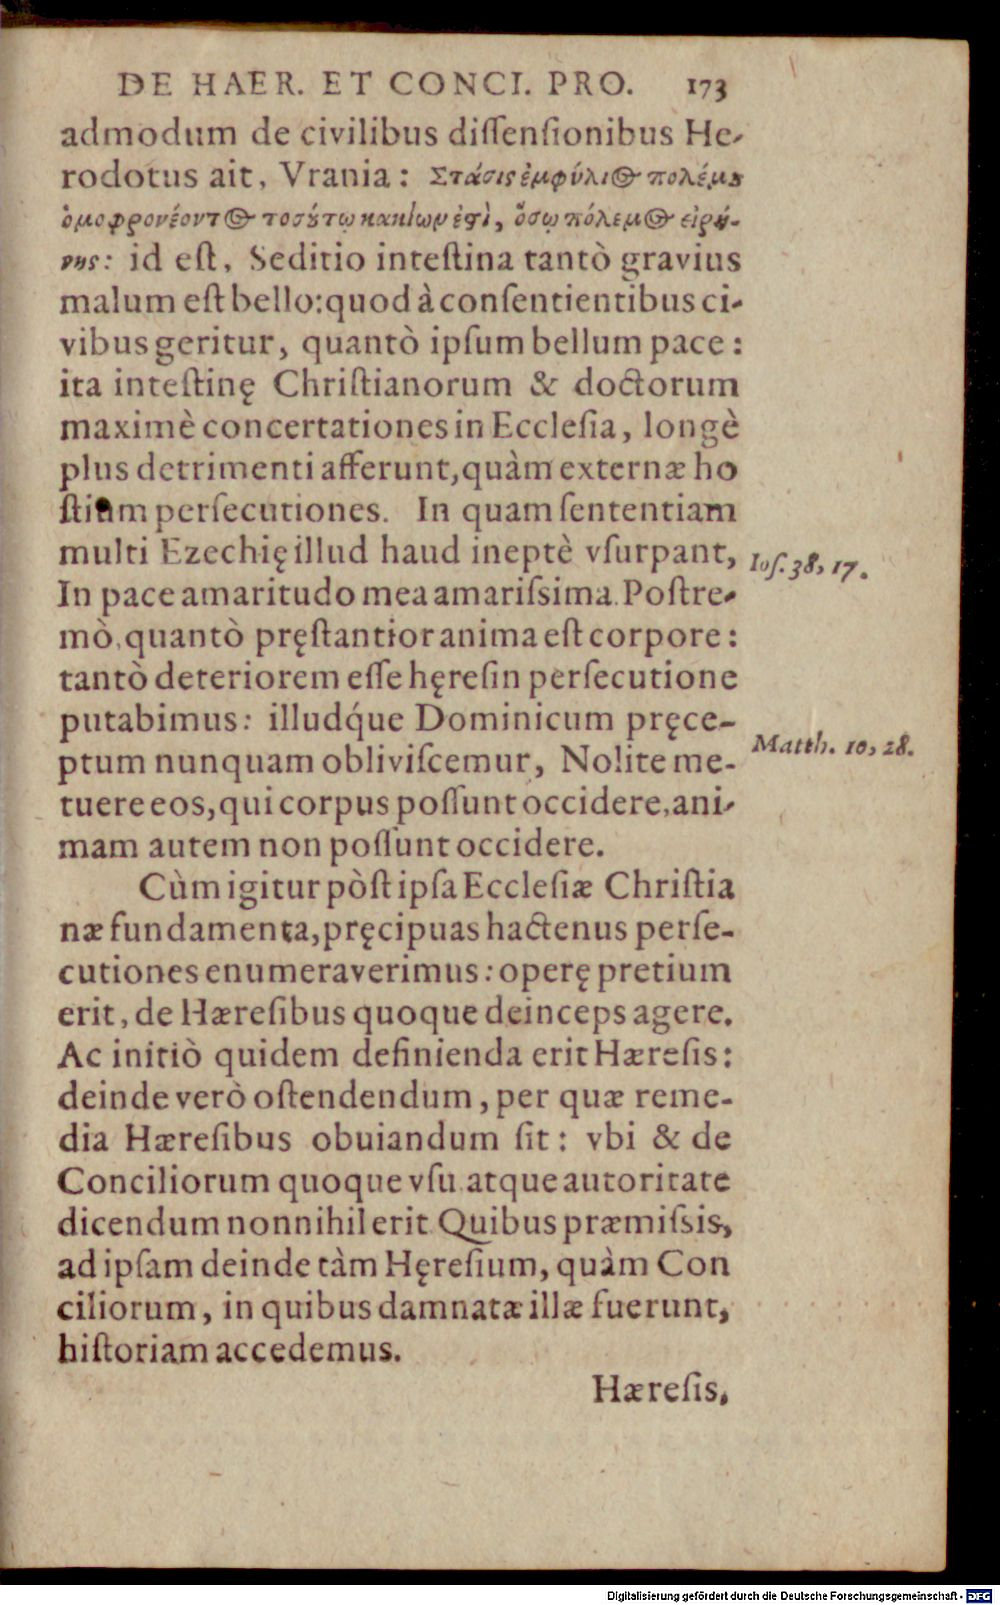 DE HAER. ET CONCI. PRO. 173
admodum de civilibus diſſenſionibus He-
rodotus ait, Vrania: Στάσις ἐμφύλιος πολέμου
ὁμοφρονέοντος τοσούτῳ κακίων ἐστὶ, ὅσῳ πόλεμος εἰρή-
νης: id eſt, Seditio inteſtina tantò gravius
malum eſt bello: quod à conſentientibus ci-
vibus geritur, quantò ipſum bellum pace:
ita inteſtinę Chriſtianorum & doctorum
maximè concertationes in Eccleſia, longè
plus detrimenti afferunt, quàm externæ ho
ſtium perſecutiones. In quam ſententiam
multi Ezechię illud haud ineptè vſurpant,
Ioſ. 38, 17.
In pace amaritudo mea amariſsima. Poſtre-
mò, quantò pręſtantior anima eſt corpore:
tantò deteriorem eſſe hęreſin perſecutione
putabimus: illudq́ue Dominicum pręce-
Matth. 10, 28.
ptum nunquam obliviſcemur, Nolite me-
tuere eos, qui corpus poſſunt occidere, ani-
mam autem non poſſunt occidere.
Cùm igitur pòſt ipſa Eccleſiæ Chriſtia
næ fundamenta, pręcipuas hactenus perſe-
cutiones enumeraverimus: operę pretium
erit, de Hæreſibus quoque deinceps agere.
Ac initiò quidem definienda erit Hæreſis:
deinde verò oſtendendum, per quæ reme-
dia Hæreſibus obuiandum ſit: vbi & de
Conciliorum quoque vſu atque autoritate
dicendum nonnihil erit Quibus præmiſsis,
ad ipſam deinde tàm Hęreſium, quàm Con
ciliorum, in quibus damnatæ illæ fuerunt,
hiſtoriam accedemus.
Hæreſis,
Digitalisierung gefördert durch die Deutsche Forschungsgemeinschaft - DFG